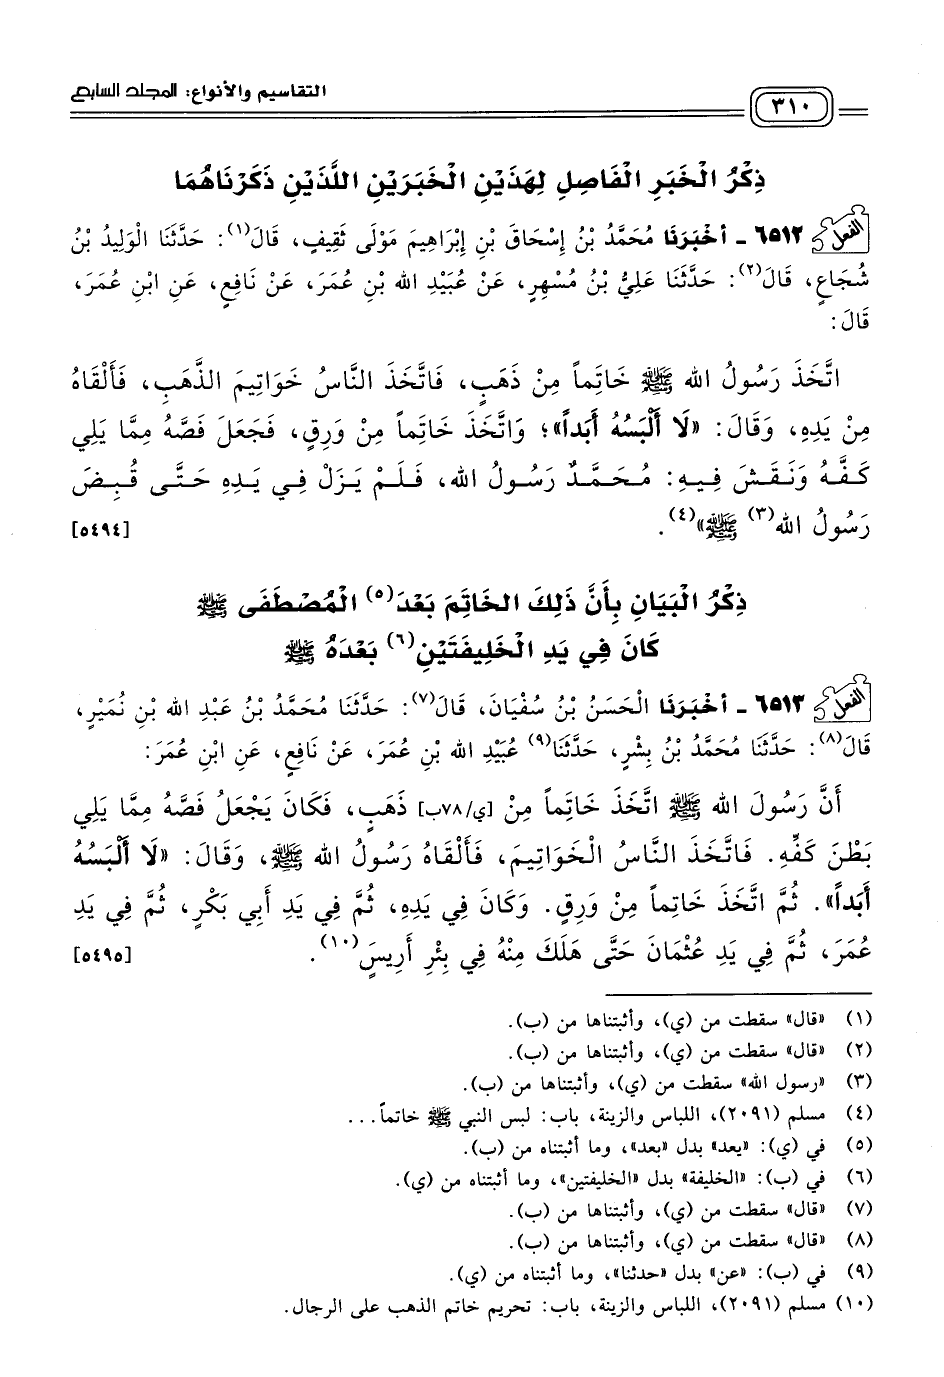 التقاسيم والأنواع: المجلد السابع
٣١٠
ذِكْرُ الْخَبَرِ الْفَاصِلِ لِهَذَيْنِ الْخَبَرَيْنِ اللَّذَيْنِ ذَكَرْنَاهُمَا
الفعل ٦٥١٢ - أخْبَرَنَا مُحَمَّدُ بْنُ إِسْحَاقَ بْنِ إِبْرَاهِيمَ مَوْلَى ثَقِيفٍ، قَالَ(١): حَدَّثَنَا الْوَلِيدُ بْنُ
شُجَاعٍ، قَالَ(٢): حَدَّثَنَا عَلِيُّ بْنُ مُسْهِرٍ، عَنْ عُبَيْدِ الله بْنِ عُمَرَ، عَنْ نَافِعٍ، عَنِ ابْنِ عُمَرَ،
قَالَ:
اتَّخَذَ رَسُولُ الله ﷺ خَاتِماً مِنْ ذَهَبٍ، فَاتَّخَذَ النَّاسُ خَوَاتِيمَ الذَّهَبِ، فَأَلْقَاهُ
مِنْ يَدِهِ، وَقَالَ: «لَا أَلْبَسُهُ أَبَداً»؛ وَاتَّخَذَ خَاتِماً مِنْ وَرِقٍ، فَجَعَلَ فَصَّهُ مِمَّا يَلِي
كَفَّهُ وَنَقَشَ فِيهِ: مُحَمَّدٌ رَسُولُ الله، فَلَمْ يَزَلْ فِي يَدِهِ حَتَّى قُبِضَ
رَسُولُ الله(٣) ﷺ»(٤). [٥٤٩٤]
ذِكْرُ الْبَيَانِ بِأَنَّ ذَلِكَ الخَاتِمَ بَعْدَ(٥) الْمُصْطَفَى ﷺ
كَانَ فِي يَدِ الْخَلِيفَتَيْنِ(٦) بَعْدَهُ ﷺ
الفعل ٦٥١٣ - أخْبَرَنَا الْحَسَنُ بْنُ سُفْيَانَ، قَالَ(٧): حَدَّثَنَا مُحَمَّدُ بْنُ عَبْدِ الله بْنِ نُمَيْرٍ،
قَالَ(٨): حَدَّثَنَا مُحَمَّدُ بْنُ بِشْرٍ، حَدَّثَنَا(٩) عُبَيْدِ الله بْنِ عُمَرَ، عَنْ نَافِعٍ، عَنِ ابْنِ عُمَرَ:
أَنَّ رَسُولَ الله ﷺ اتَّخَذَ خَاتِماً مِنْ [ي/٧٨ب] ذَهَبٍ، فَكَانَ يَجْعَلُ فَصَّهُ مِمَّا يَلِي
بَطْنَ كَفِّهِ. فَاتَّخَذَ النَّاسُ الْخَوَاتِيمَ، فَأَلْقَاهُ رَسُولُ الله ﷺ، وَقَالَ: «لَا أَلْبَسُهُ
أَبَداً». ثُمَّ اتَّخَذَ خَاتِماً مِنْ وَرِقٍ. وَكَانَ فِي يَدِهِ، ثُمَّ فِي يَدِ أَبِي بَكْرٍ، ثُمَّ فِي يَدِ
عُمَرَ، ثُمَّ فِي يَدِ عُثْمَانَ حَتَّى هَلَكَ مِنْهُ فِي بِئْرِ أَرِيسَ(١٠). [٥٤٩٥]
(١) «قال» سقطت من (ي)، وأثبتناها من (ب).
(٢) «قال» سقطت من (ي)، وأثبتناها من (ب).
(٣) «رسول الله» سقطت من (ي)، وأثبتناها من (ب).
(٤) مسلم (٢٠٩١)، اللباس والزينة، باب: لبس النبي ﷺ خاتماً...
(٥) في (ي): «يعد» بدل «بعد»، وما أثبتناه من (ب).
(٦) في (ب): «الخليفة» بدل «الخليفتين»، وما أثبتناه من (ي).
(٧) «قال» سقطت من (ي)، وأثبتناها من (ب).
(٨) «قال» سقطت من (ي)، وأثبتناها من (ب).
(٩) في (ب): «عن» بدل «حدثنا»، وما أثبتناه من (ي).
(١٠) مسلم (٢٠٩١)، اللباس والزينة، باب: تحريم خاتم الذهب على الرجال.